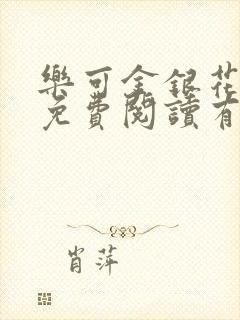 樂可金銀花
免費閱讀有
肖萍